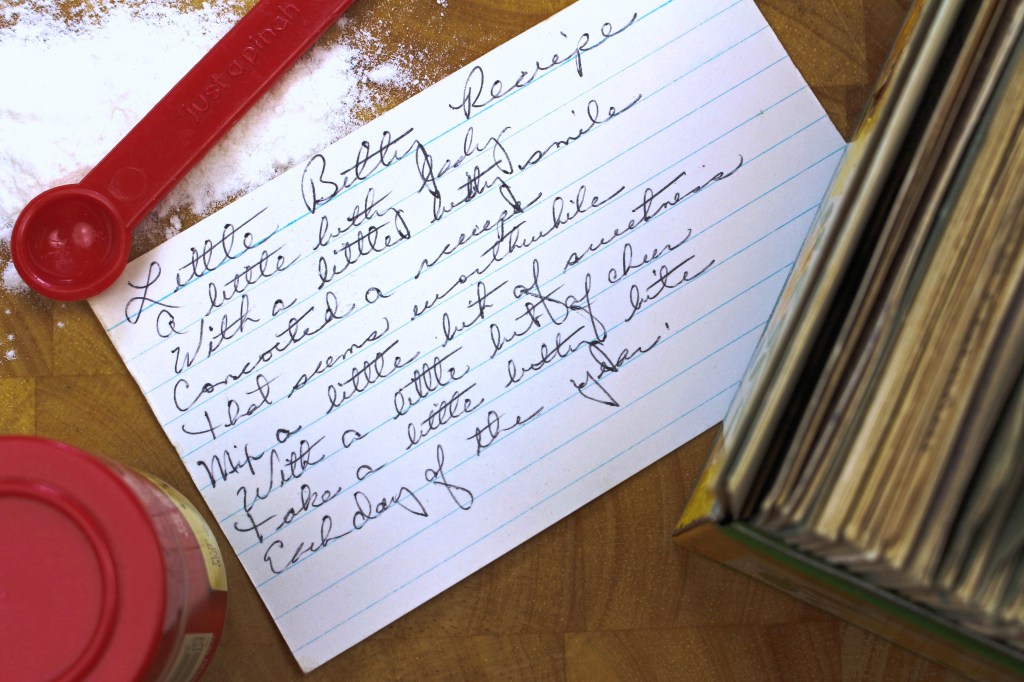 just a pinch
Little Bitty Receipe
A little bitty lady
With a little bitty smile
Concocted a receipe
That seems worthwhile
Mix a little bit of sweetness
With a little bit of cheer
Take a little bitty bite
Each day of the year